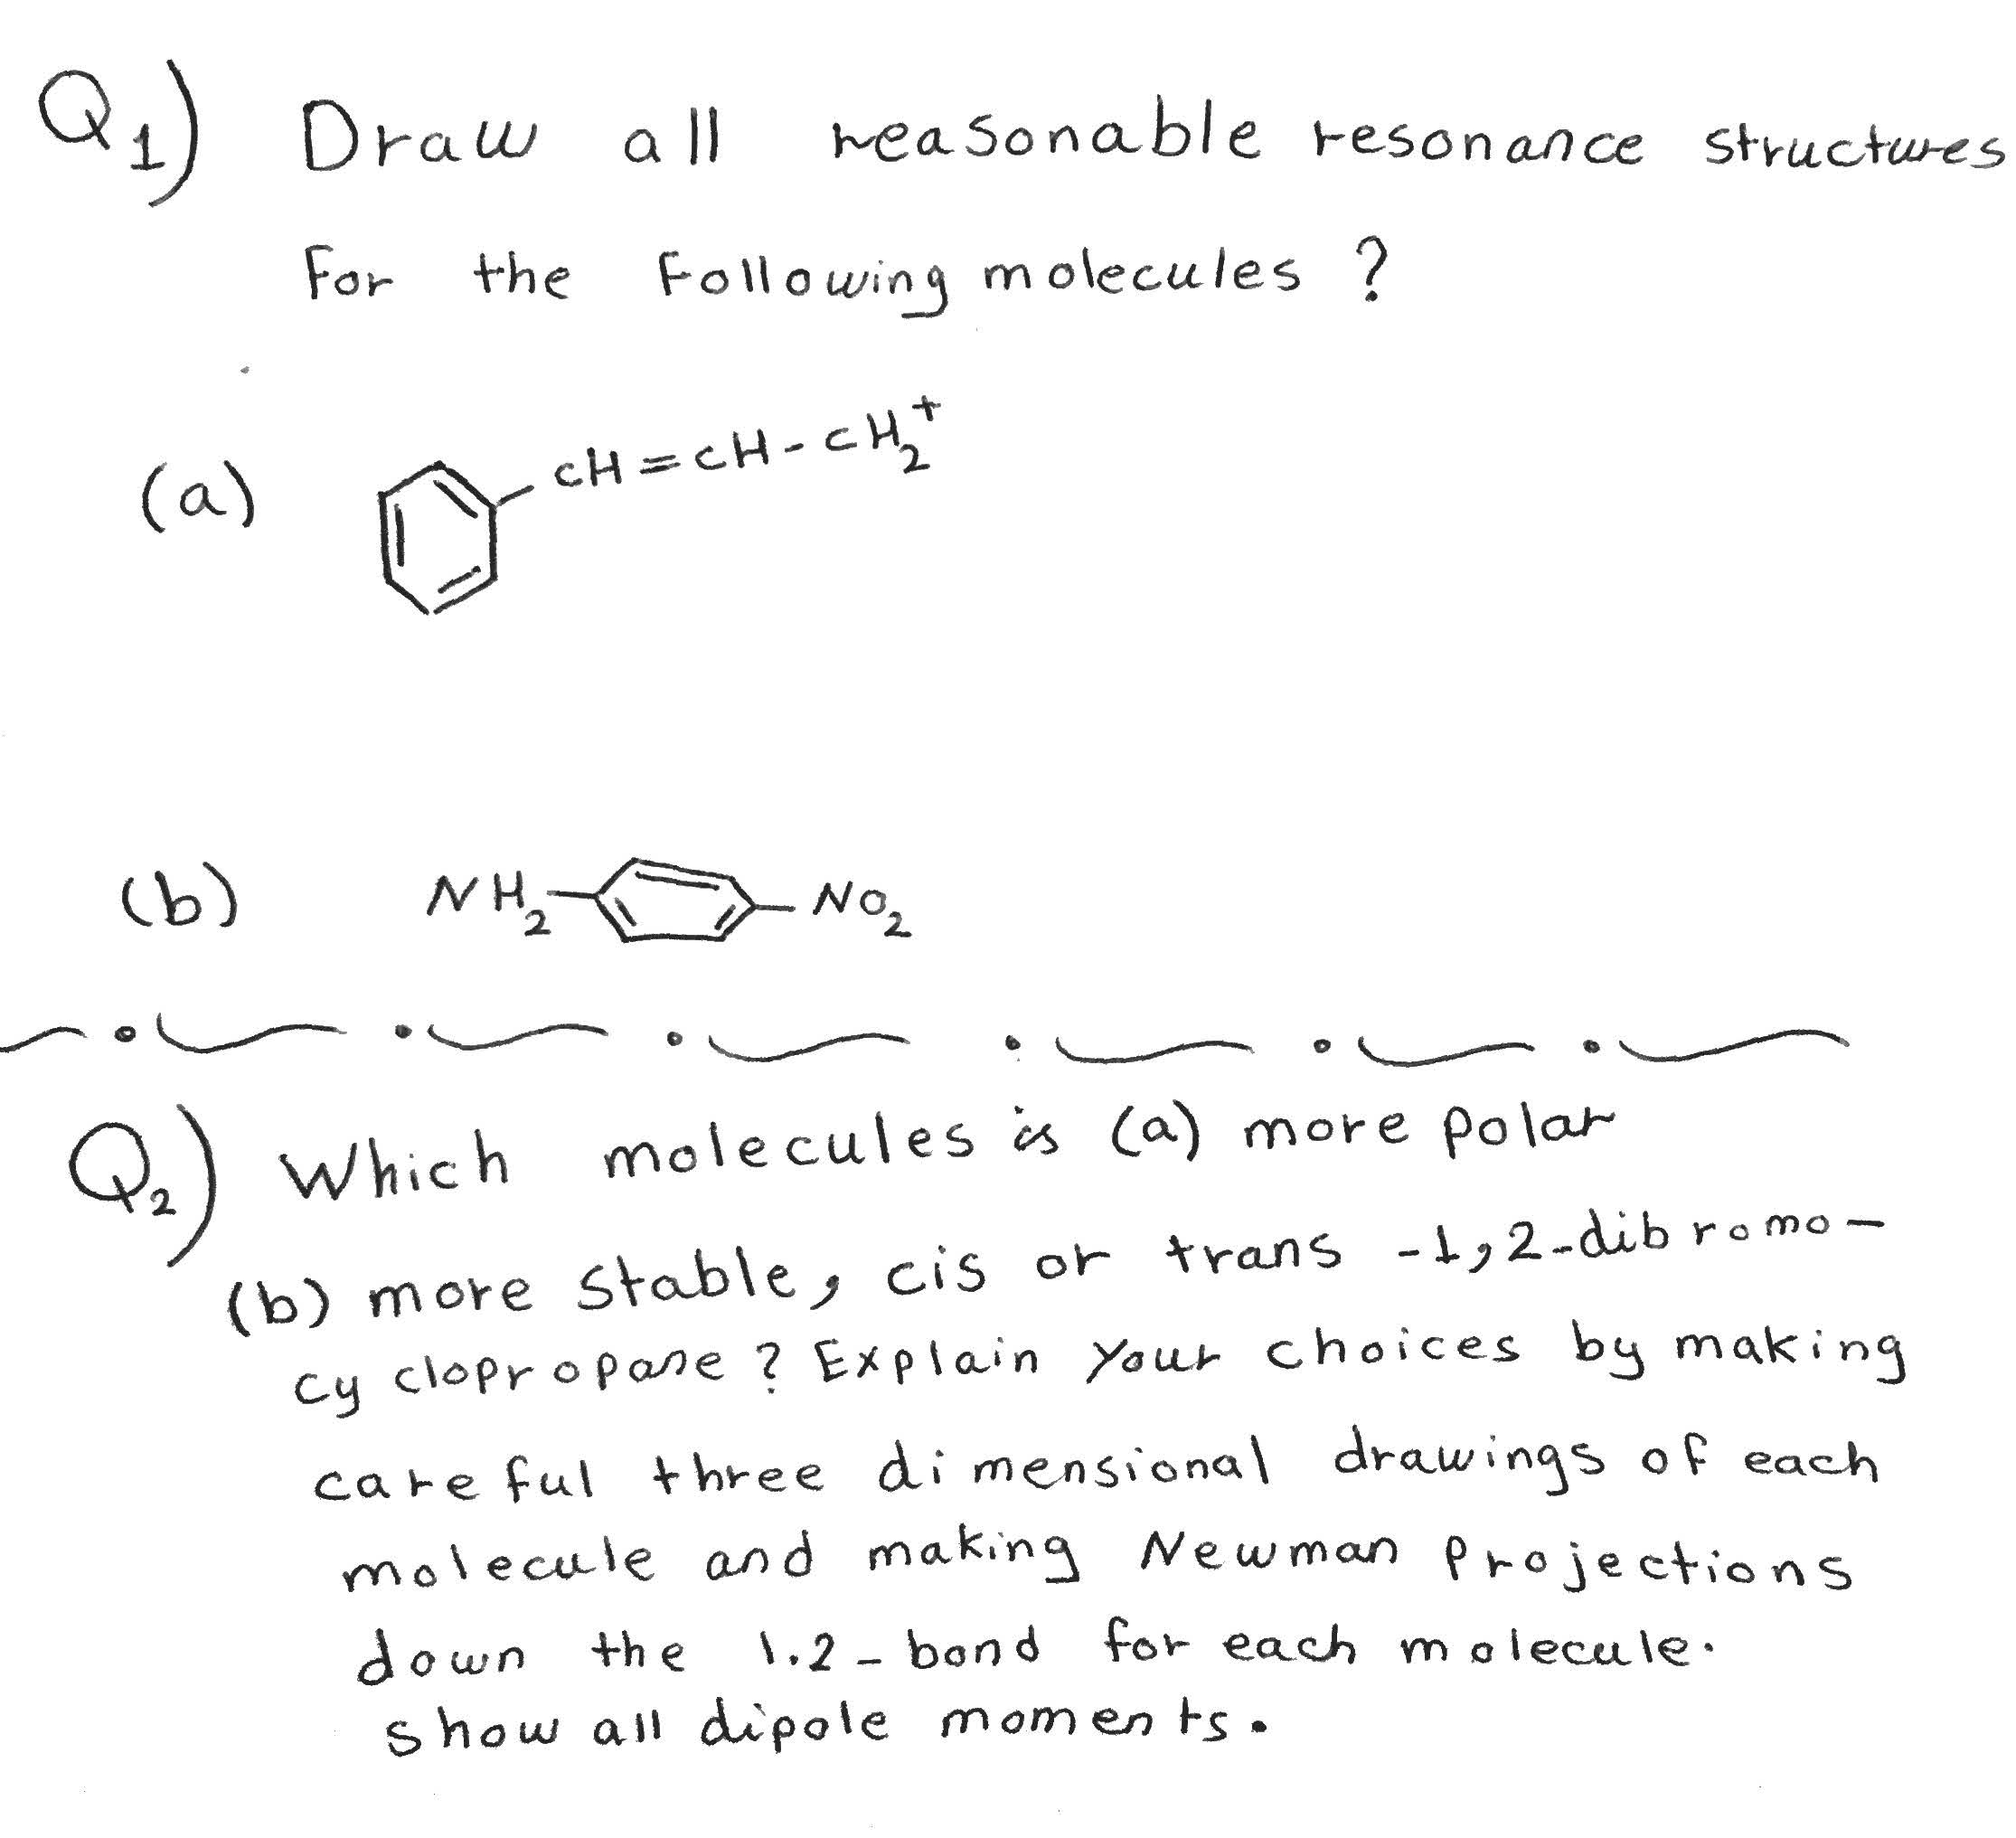 Q1) Draw all reasonable resonance structures
For the Following molecules ?
(a) CH=CH-CH2+
(b) NH2 NO2
Q2) Which molecules is (a) more polar
(b) more stable, cis or trans -1,2-dibromo-
cyclopropane ? Explain your choices by making
careful three dimensional drawings of each
molecule and making Newman Projections
down the 1.2-bond for each molecule.
show all dipole moments.